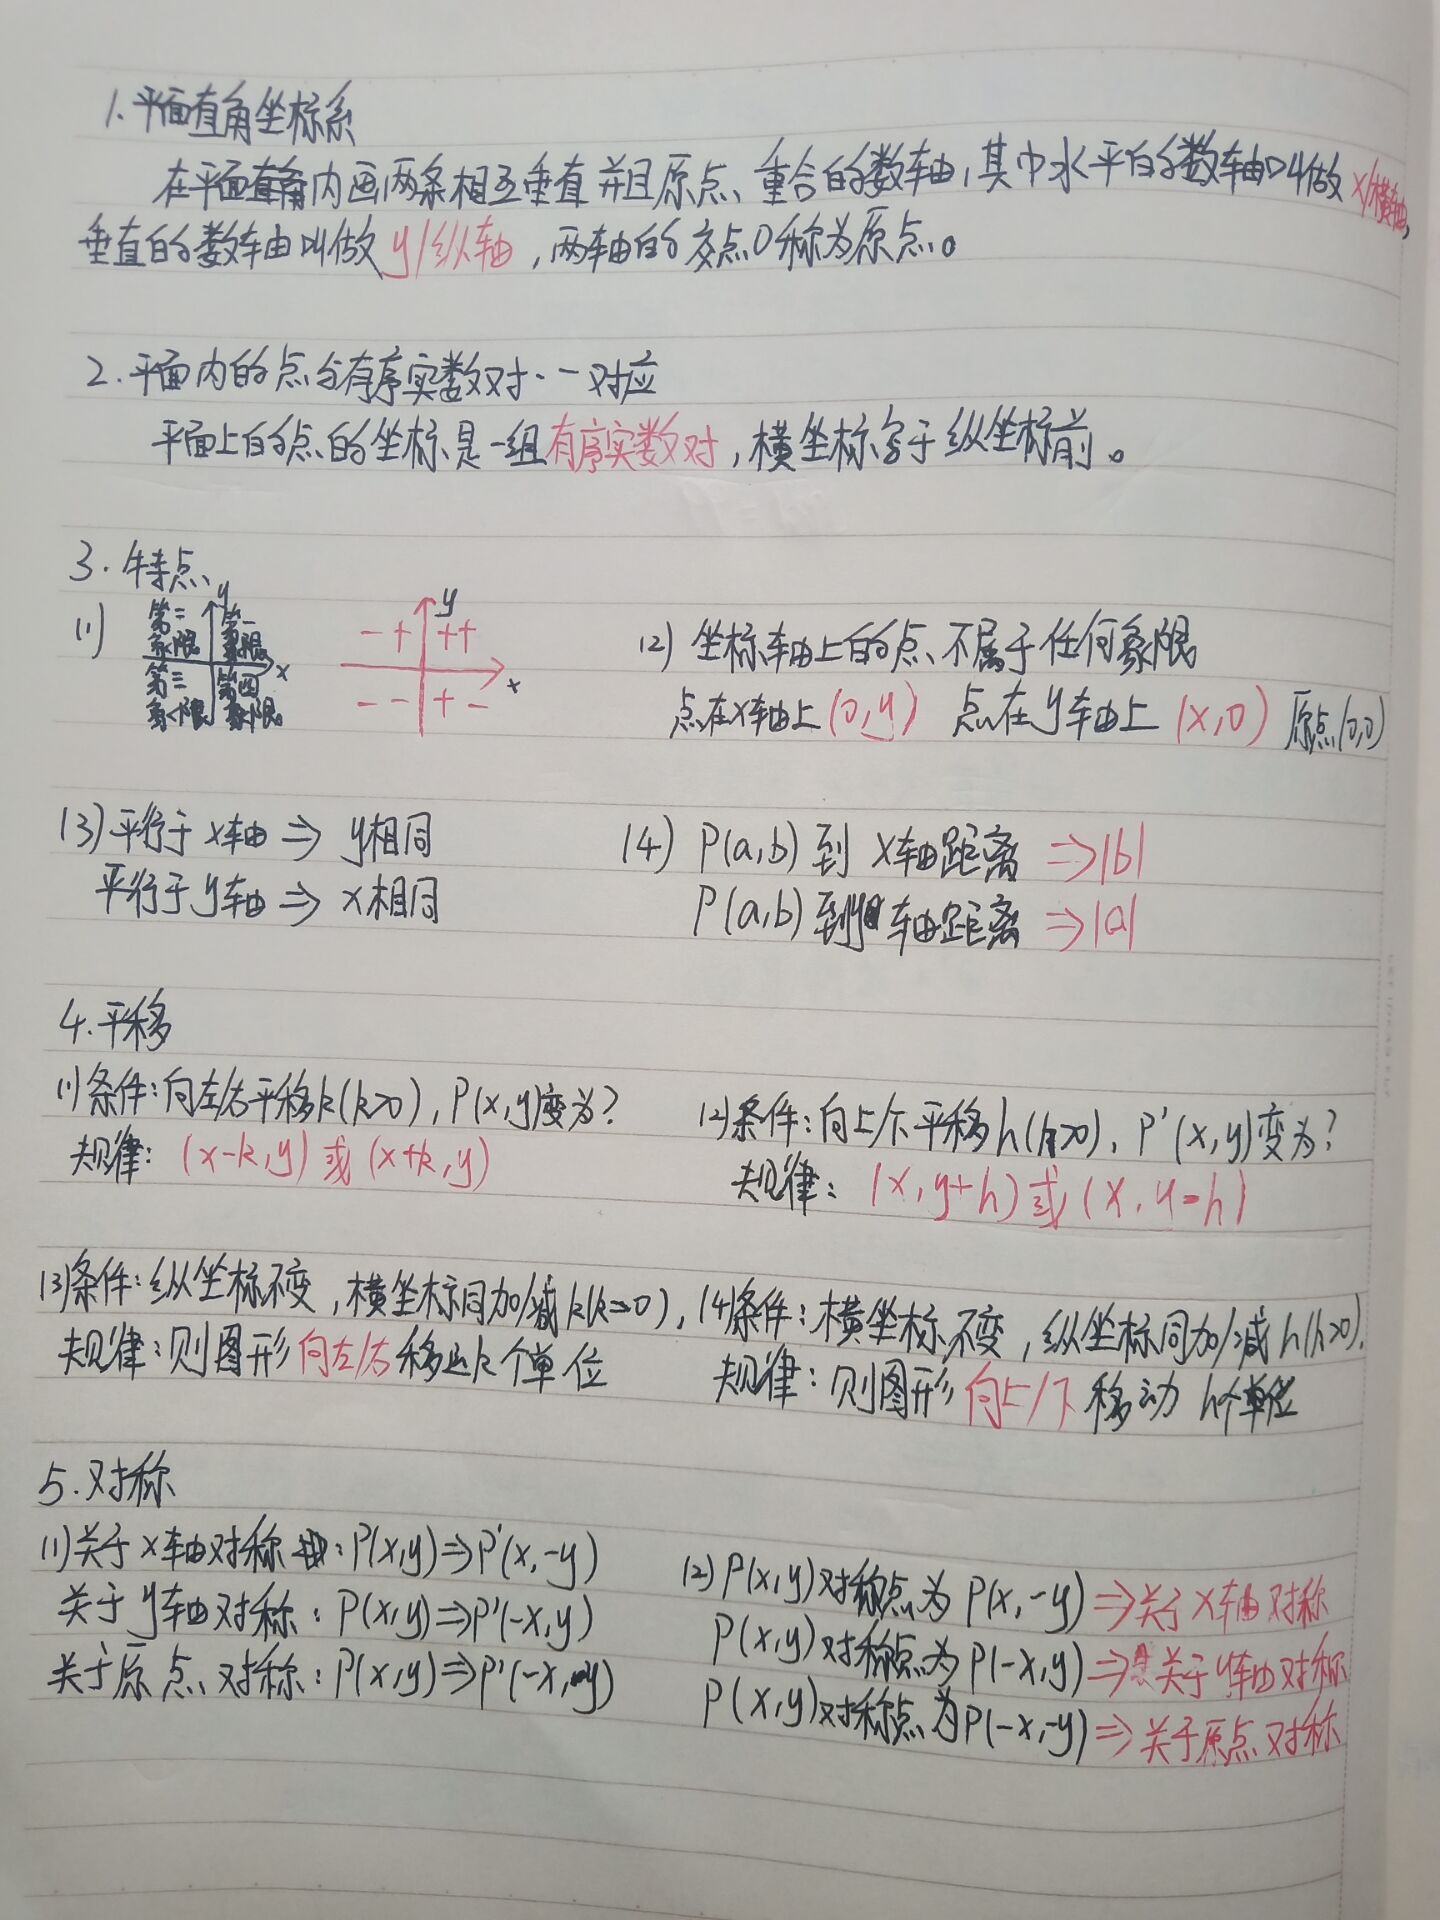 1.平面直角坐标系
在平面内画两条相互垂直并且原点重合的数轴,其中水平的数轴叫做x/横轴,
垂直的数轴叫做y/纵轴,两轴的交点O称为原点。
2.平面内的点与有序实数对一一对应
平面上的点的坐标是一组有序实数对,横坐标写于纵坐标前。
3.特点
(1)
y
第二象限
第一象限
x
第三象限
第四象限
y
-+ ++
x
-- +-
(2)坐标轴上的点不属于任何象限
点在x轴上(0,y) 点在y轴上(x,0) 原点(0,0)
(3)平行于x轴⇒y相同
平行于y轴⇒x相同
(4)P(a,b)到x轴距离⇒|b|
P(a,b)到y轴距离⇒|a|
4.平移
(1)条件:向左/右平移k(k>0),P(x,y)变为?
规律:(x-k,y)或(x+k,y)
(2)条件:向上/下平移h(h>0),P'(x,y)变为?
规律:(x,y+h)或(x,y-h)
(3)条件:纵坐标不变,横坐标同加/减k(k>0),
规律:则图形向左/右移k个单位
(4)条件:横坐标不变,纵坐标同加/减h(h>0).
规律:则图形向上/下移动h个单位
5.对称
(1)关于x轴对称:P(x,y)⇒P'(x,-y)
关于y轴对称:P(x,y)⇒P'(-x,y)
关于原点对称:P(x,y)⇒P'(-x,-y)
(2)P(x,y)对称点为P(x,-y)⇒关于x轴对称
P(x,y)对称点为P(-x,y)⇒关于y轴对称
P(x,y)对称点为P(-x,-y)⇒关于原点对称